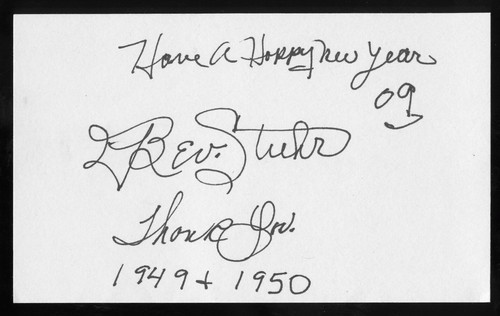 Have A Happy New Year
09
Bev. Stuhr
Thank You.
1949 + 1950